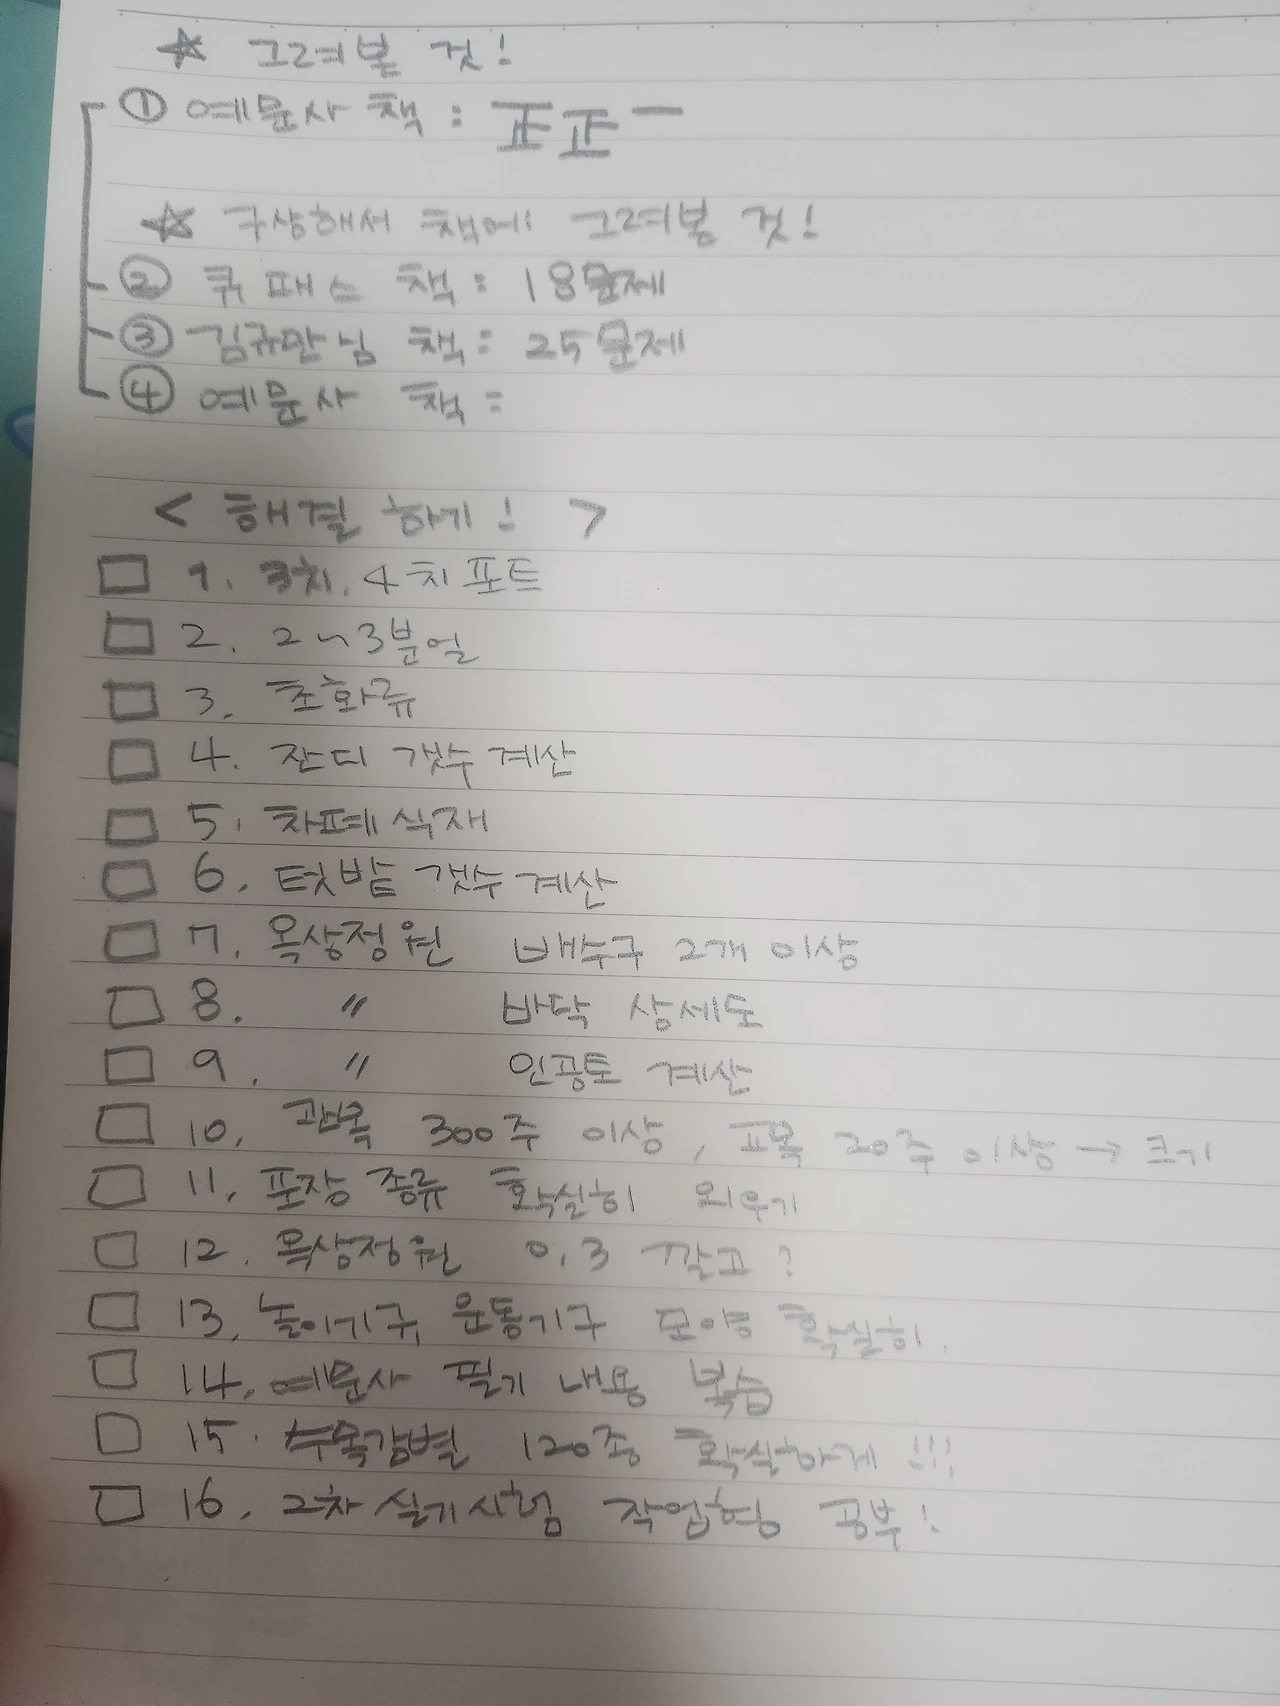 ☆ 그려볼 것!
① 예문사 책 : 正正一
☆ 구상해서 책에 그려볼 것!
② 퀵패스 책 : 18문제
③ 김규만님 책 : 25문제
④ 예문사 책 :
< 해결하기! >
□ 1. 3치, 4치 포트
□ 2. 2~3분얼
□ 3. 초화류
□ 4. 잔디 갯수 계산
□ 5. 차폐식재
□ 6. 텃밭 갯수 계산
□ 7. 옥상정원 배수구 2개 이상
□ 8. 〃 바닥 상세도
□ 9. 〃 인공토 계산
□ 10. 관목 300주 이상, 교목 20주 이상 → 크기
□ 11. 포장 종류 확실히 외우기
□ 12. 옥상정원 0.3 깔고?
□ 13. 놀이기구, 운동기구 모양 확실히.
□ 14. 예문사 필기 내용 복습
□ 15. 수목감별 120종 확실하게!!!
□ 16. 2차 실기시험 작업형 공부!